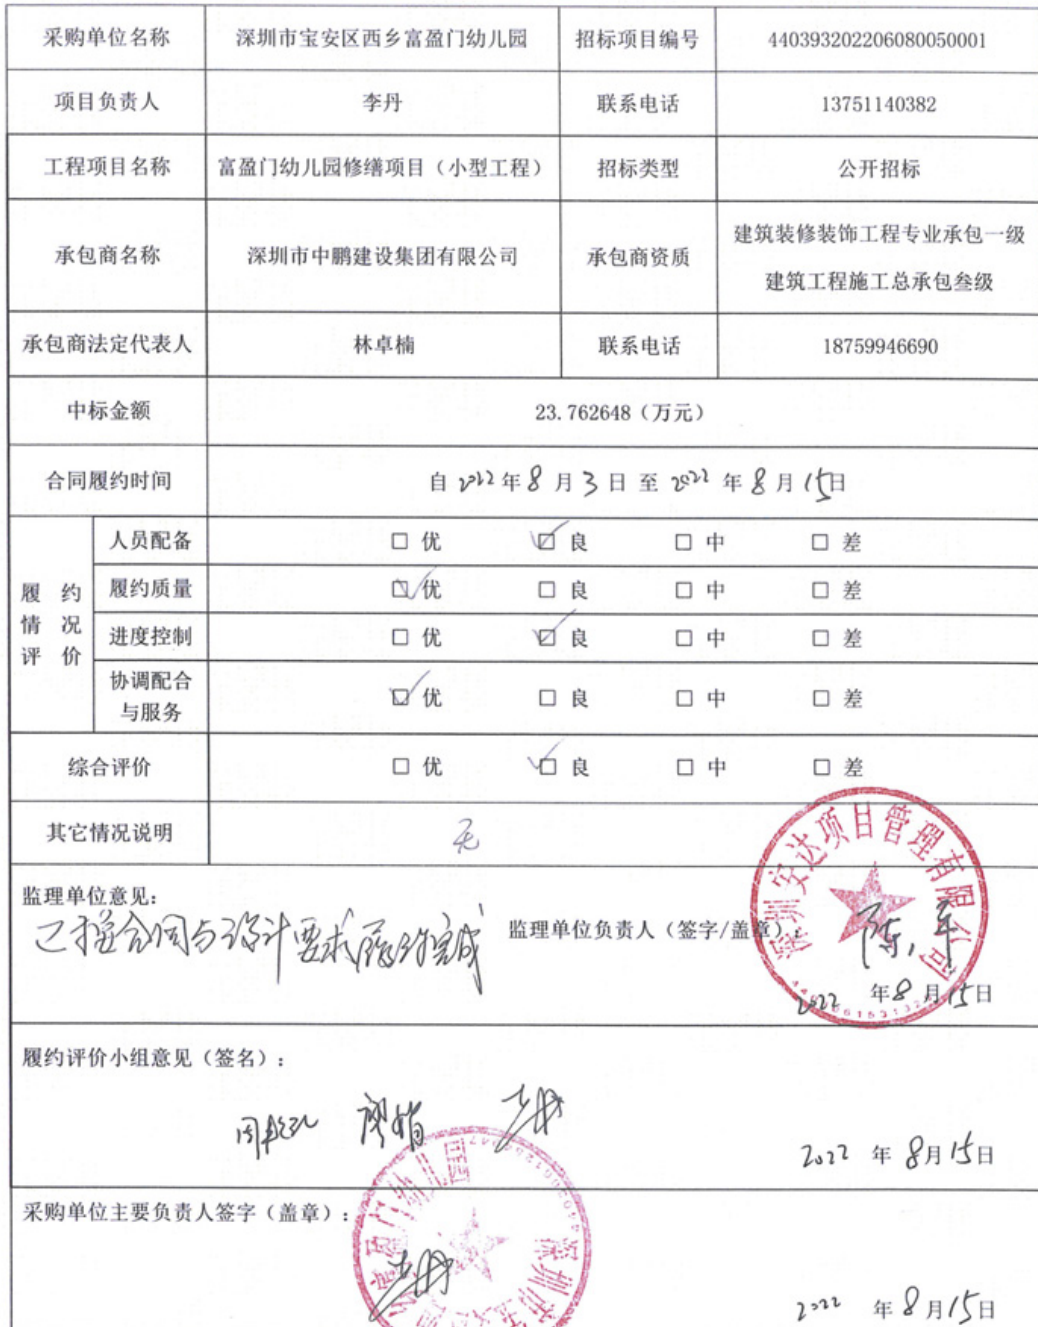 采购单位名称 深圳市宝安区西乡富盈门幼儿园 招标项目编号 440393202206080050001
项目负责人 李丹 联系电话 13751140382
工程项目名称 富盈门幼儿园修缮项目（小型工程） 招标类型 公开招标
承包商名称 深圳市中鹏建设集团有限公司 承包商资质 建筑装修装饰工程专业承包一级
建筑工程施工总承包叁级
承包商法定代表人 林卓楠 联系电话 18759946690
中标金额 23.762648（万元）
合同履约时间 自 2022 年 8 月 3 日 至 2022 年 8 月 15 日
履约情况评价
人员配备 □ 优 ☑ 良 □ 中 □ 差
履约质量 ☑ 优 □ 良 □ 中 □ 差
进度控制 □ 优 ☑ 良 □ 中 □ 差
协调配合
与服务 ☑ 优 □ 良 □ 中 □ 差
综合评价 □ 优 ☑ 良 □ 中 □ 差
其它情况说明 无
监理单位意见：
已按合同与设计要求履约完成
监理单位负责人（签字/盖章）：
深圳安达项目管理有限公司
2022 年 8 月 15 日
履约评价小组意见（签名）：
2022 年 8 月 15 日
采购单位主要负责人签字（盖章）：
2022 年 8 月 15 日